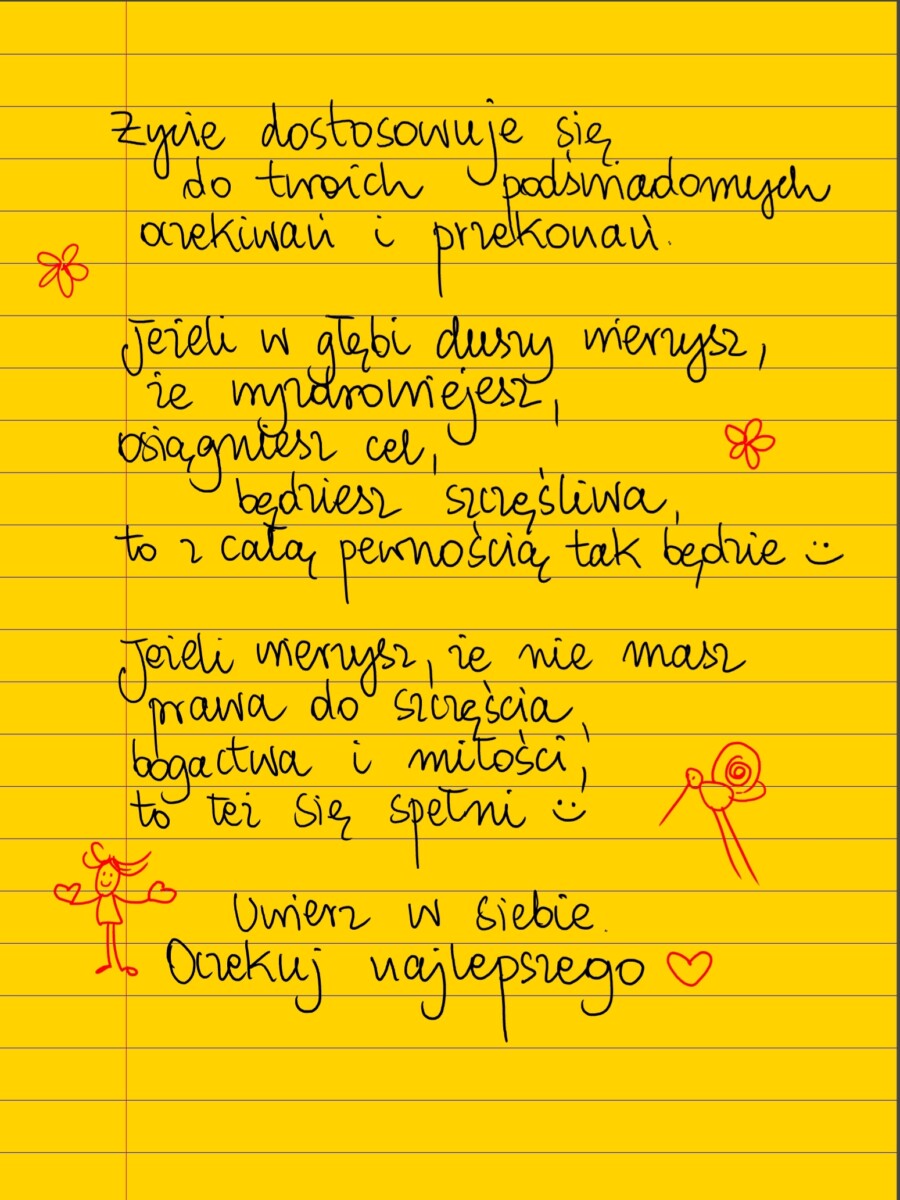 Życie dostosowuje się
do twoich podświadomych
oczekiwań i przekonań.
Jeżeli w głębi duszy wierzysz,
że wyzdrowiejesz,
osiągniesz cel,
będziesz szczęśliwa,
to z całą pewnością tak będzie :)
Jeżeli wierzysz, że nie masz
prawa do szczęścia,
bogactwa i miłości,
to też się spełni :)
Uwierz w siebie.
Oczekuj najlepszego ♡